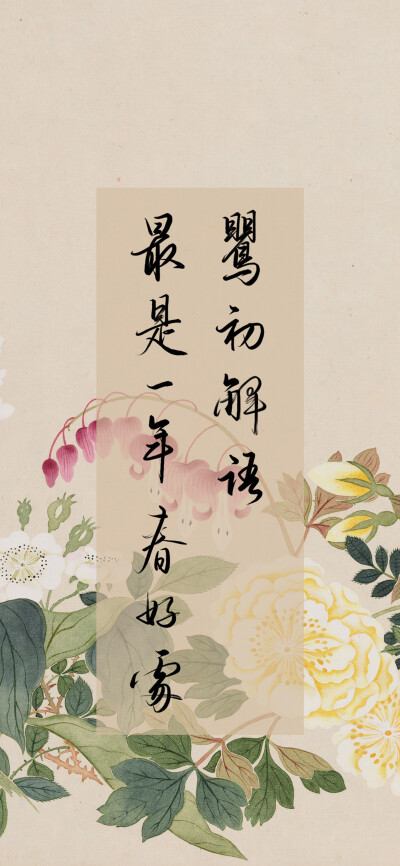 鸎初解语
最是一年春好处